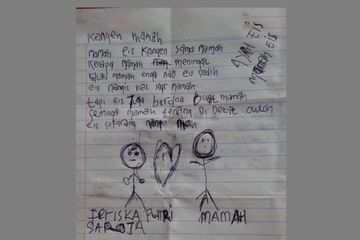 kangen mamah
mamah eis kangen sama mamah
kenapa mamah meninggal
kalau mamah enga ada eis sedih
eis nangis kalau mamah
tapi eis juga berdoa buat mamah
semoga mamah tenang Di Dekat auloh
eis sekarang
AYAH EIS
mamah EIS
IERISKA PUTRI
SAROJA
MAMAH